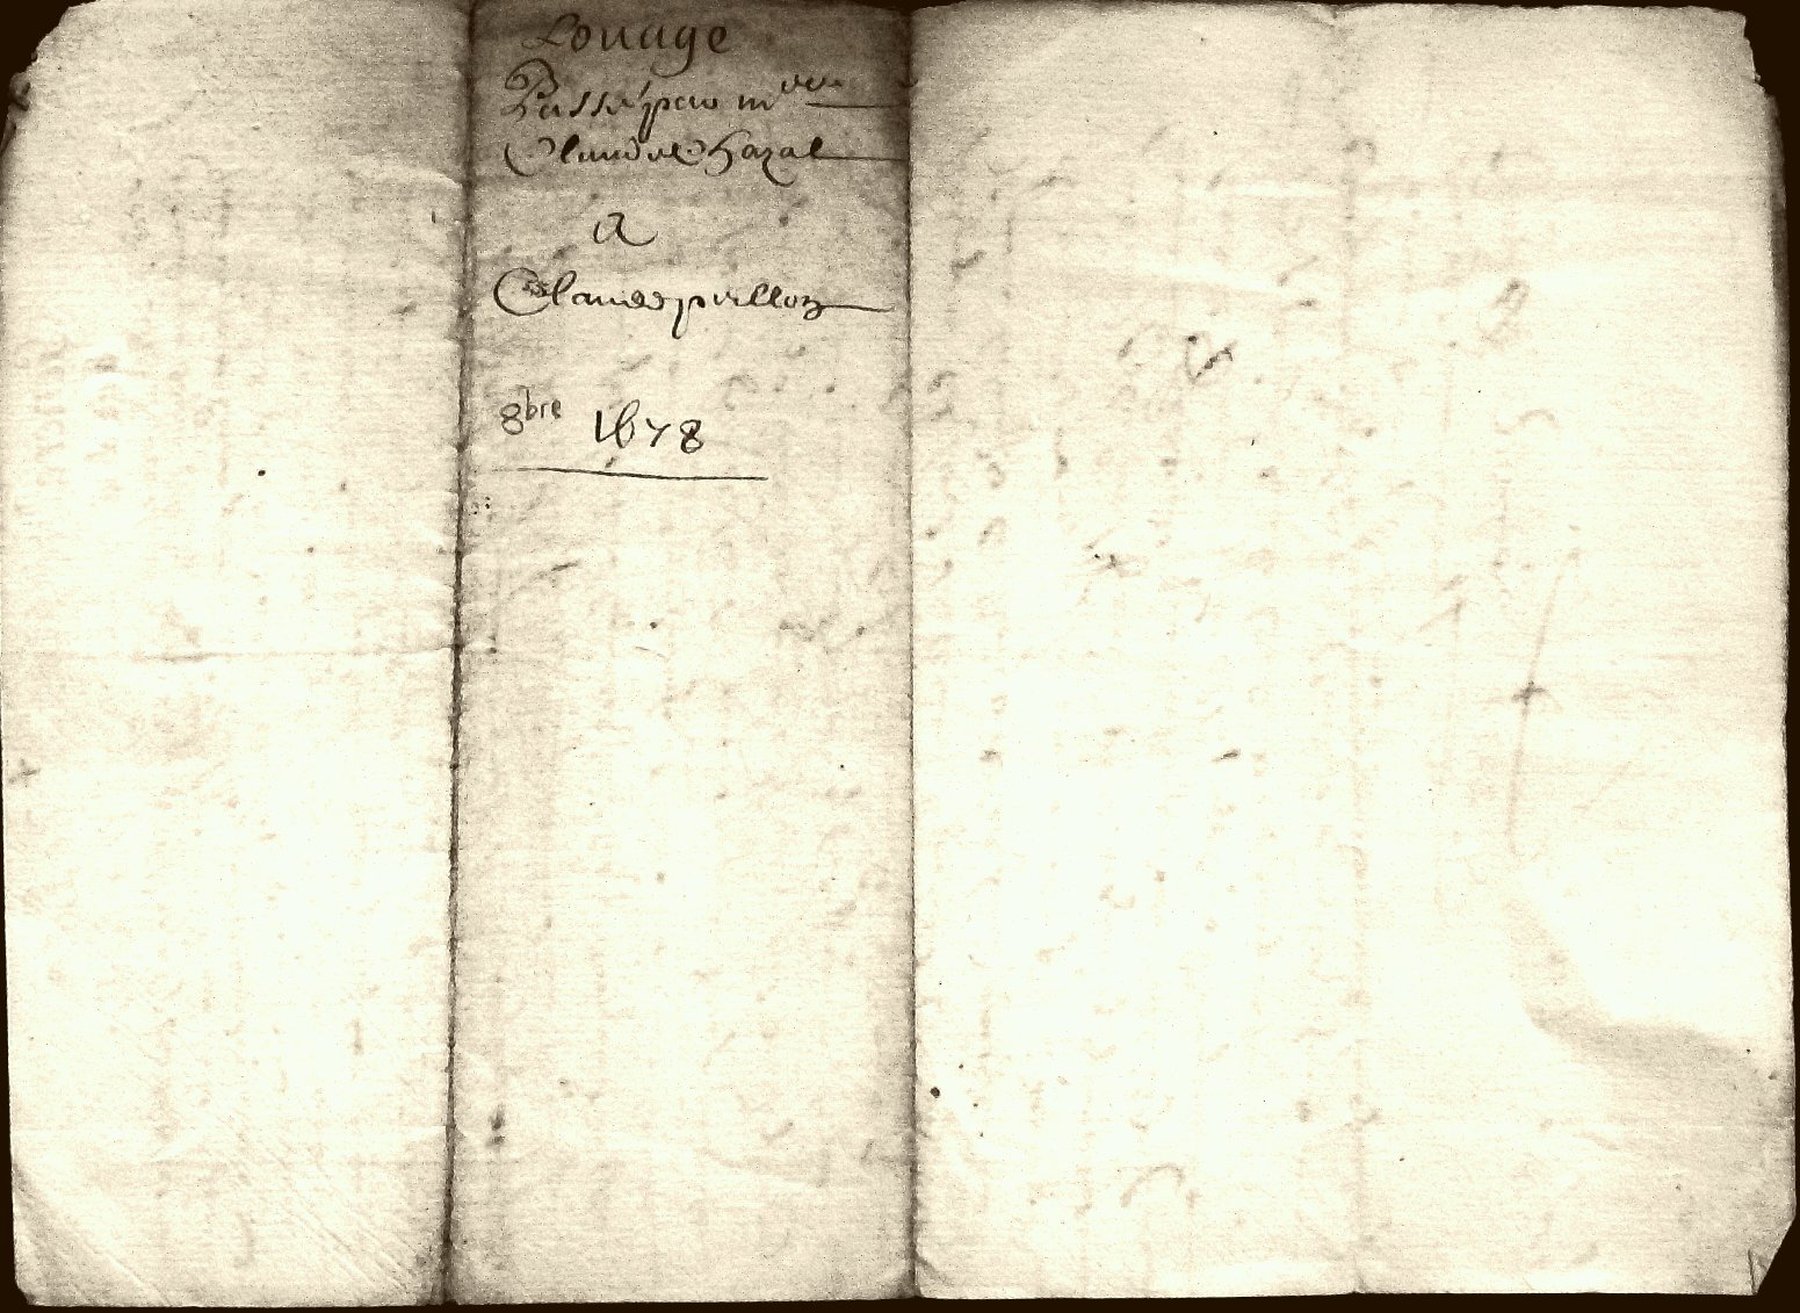 Louage
Passé par m
Claude hazal
a
Claude pvillon
8bre 1678